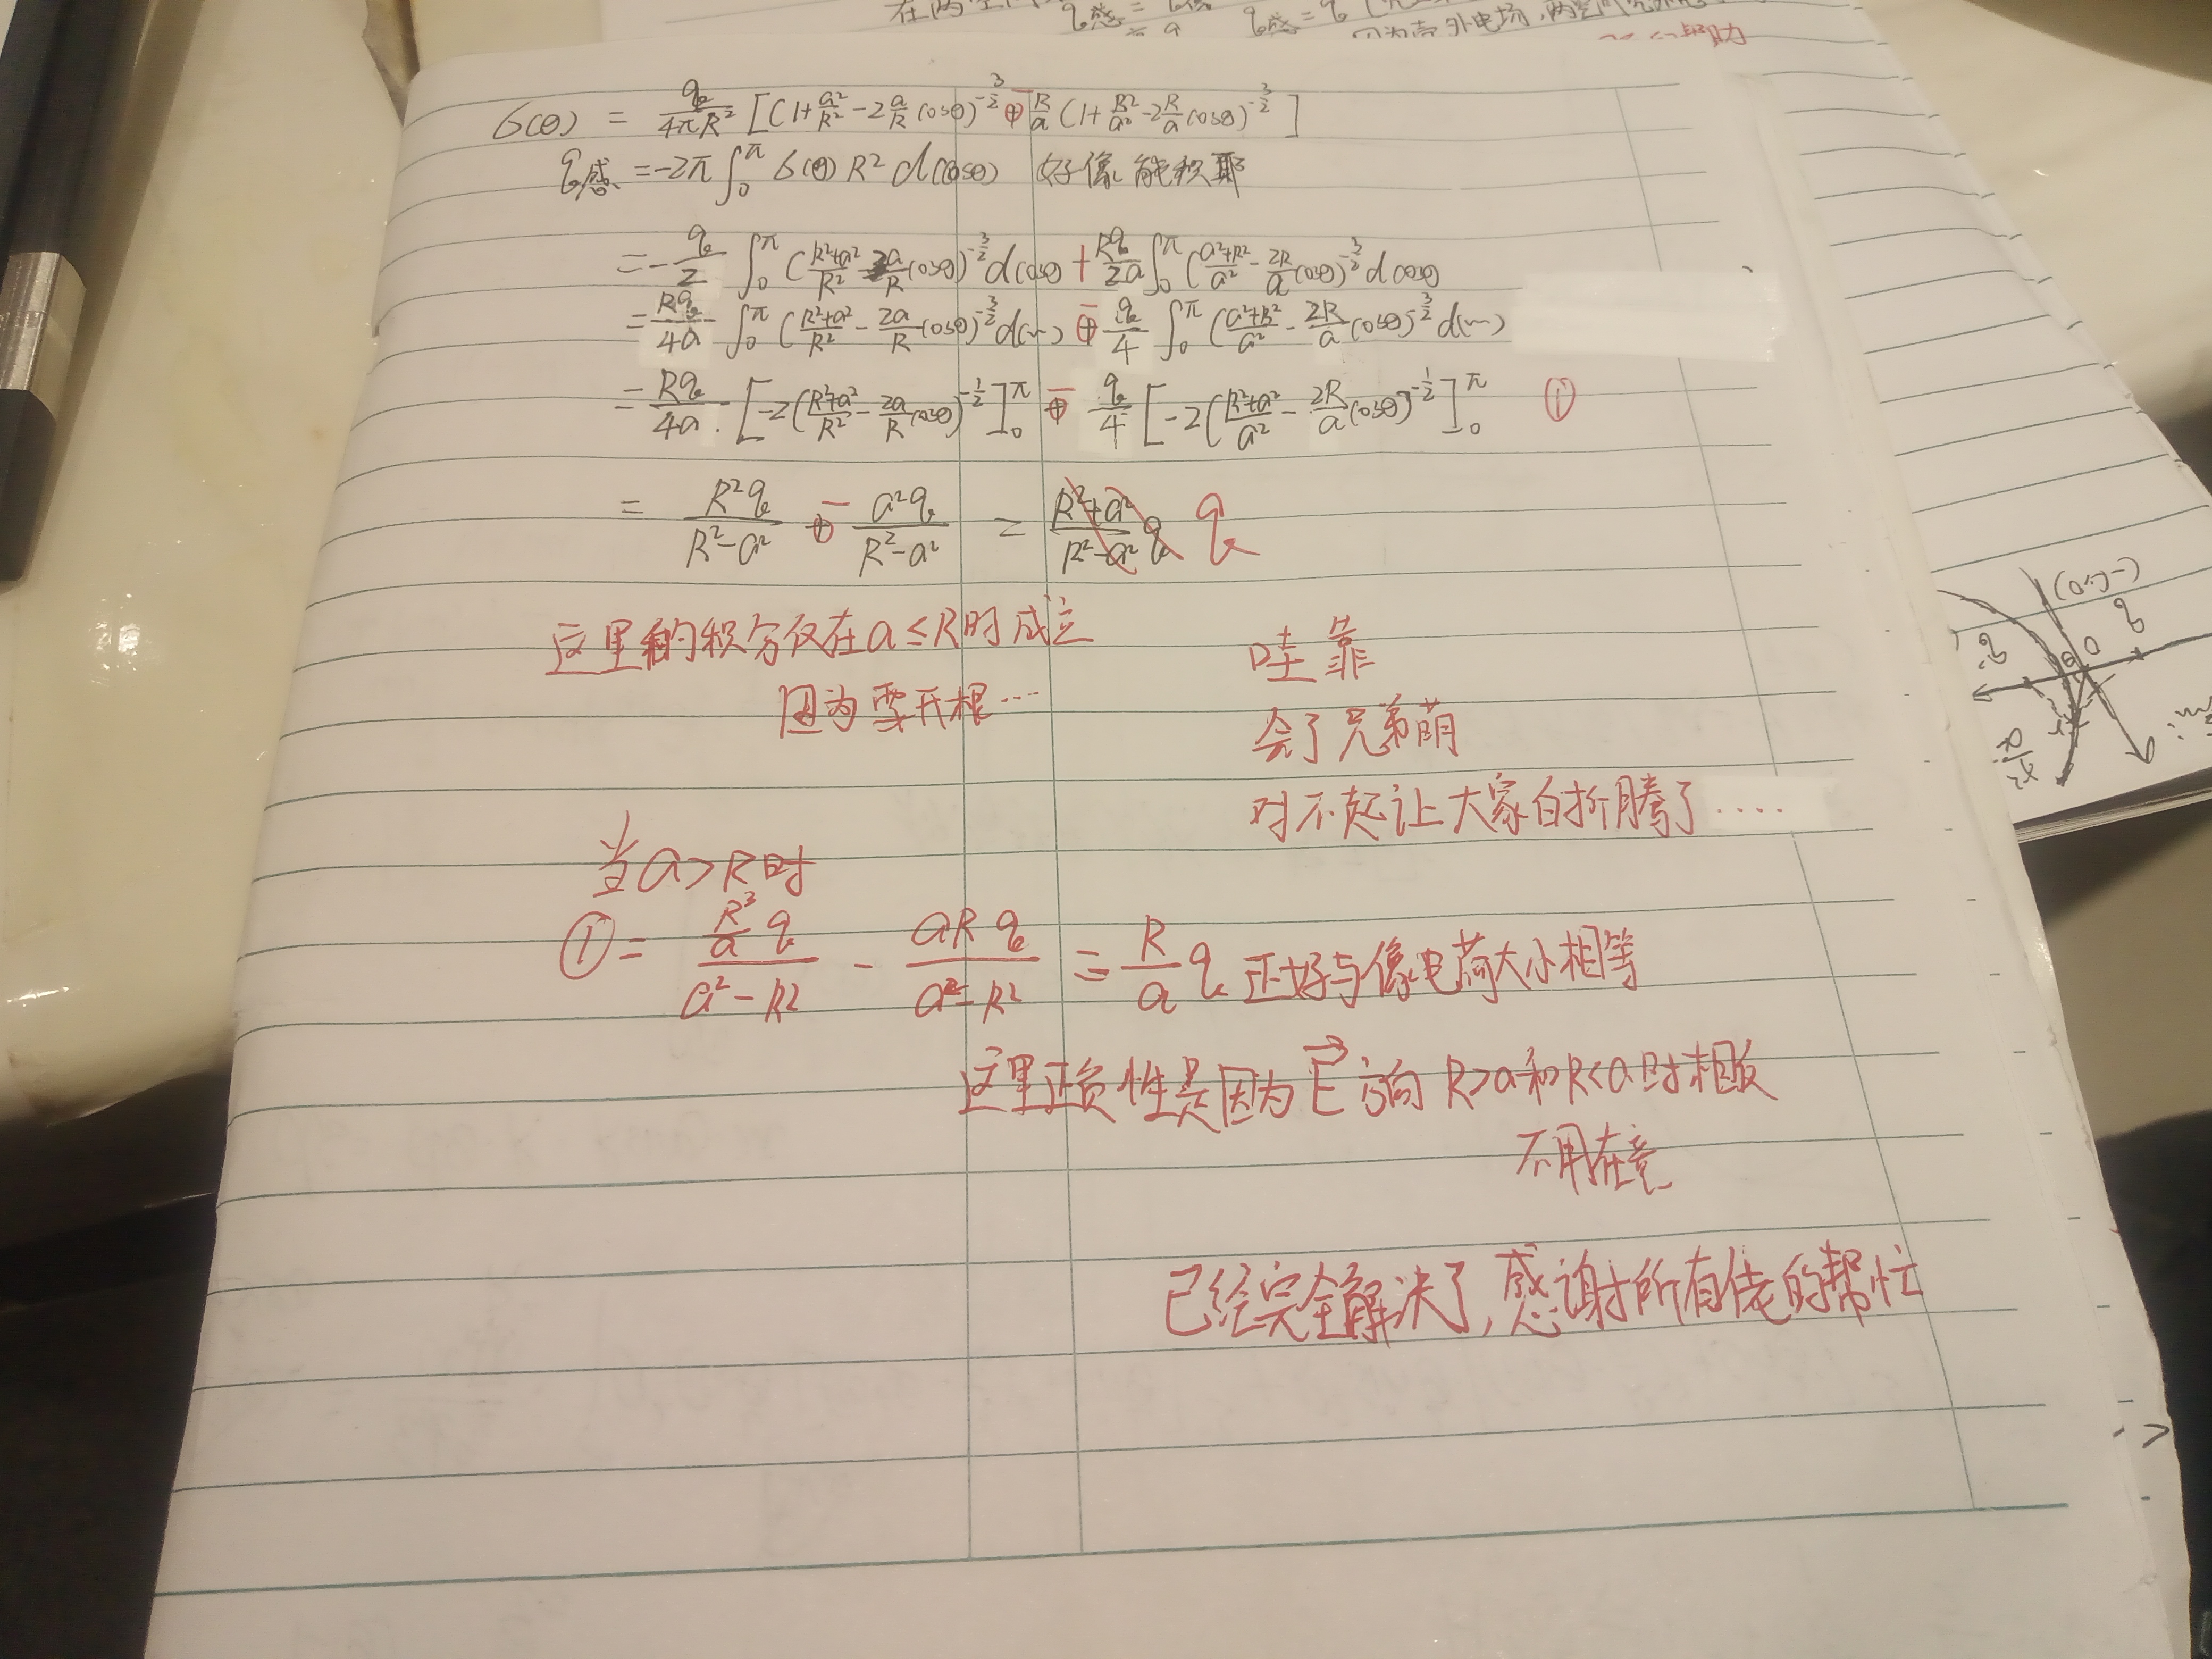 在两空间
q感 = q像
q感 = q
因为壳外电场,两空间
帮助
σ(θ) = q/(4πR²) [(1+a²/R²-2a/R cosθ)^(-3/2) - R/a (1+R²/a²-2R/a cosθ)^(-3/2)]
q感 = -2π∫₀^π σ(θ) R² d(cosθ) 好像能积耶
= -q/2 ∫₀^π ((R²+a²)/R² - 2a/R cosθ)^(-3/2) dcosθ + Rq/2a ∫₀^π ((a²+R²)/a² - 2R/a cosθ)^(-3/2) dcosθ
= Rq/4a ∫₀^π ((R²+a²)/R² - 2a/R cosθ)^(-3/2) d(~) - q/4 ∫₀^π ((a²+R²)/a² - 2R/a cosθ)^(-3/2) d(~)
= Rq/4a · [-2((R²+a²)/R² - 2a/R cosθ)^(-1/2)]₀^π - q/4 [-2((R²+a²)/a² - 2R/a cosθ)^(-1/2)]₀^π ①
= R²q/(R²-a²) - a²q/(R²-a²) = (R²+a²)/(R²-a²) q q
这里的积分仅在a≤R时成立
因为要开根…
哇靠
会了兄弟萌
对不起让大家白折腾了....
当a>R时
① = (R³/a q)/(a²-R²) - aRq/(a²-R²) = R/a q 正好与像电荷大小相等
这里正负性是因为E→方向 R>a和R<a时相反
不用在意
已经完全解决了,感谢所有佬的帮忙
(-r,0)
q
q
O